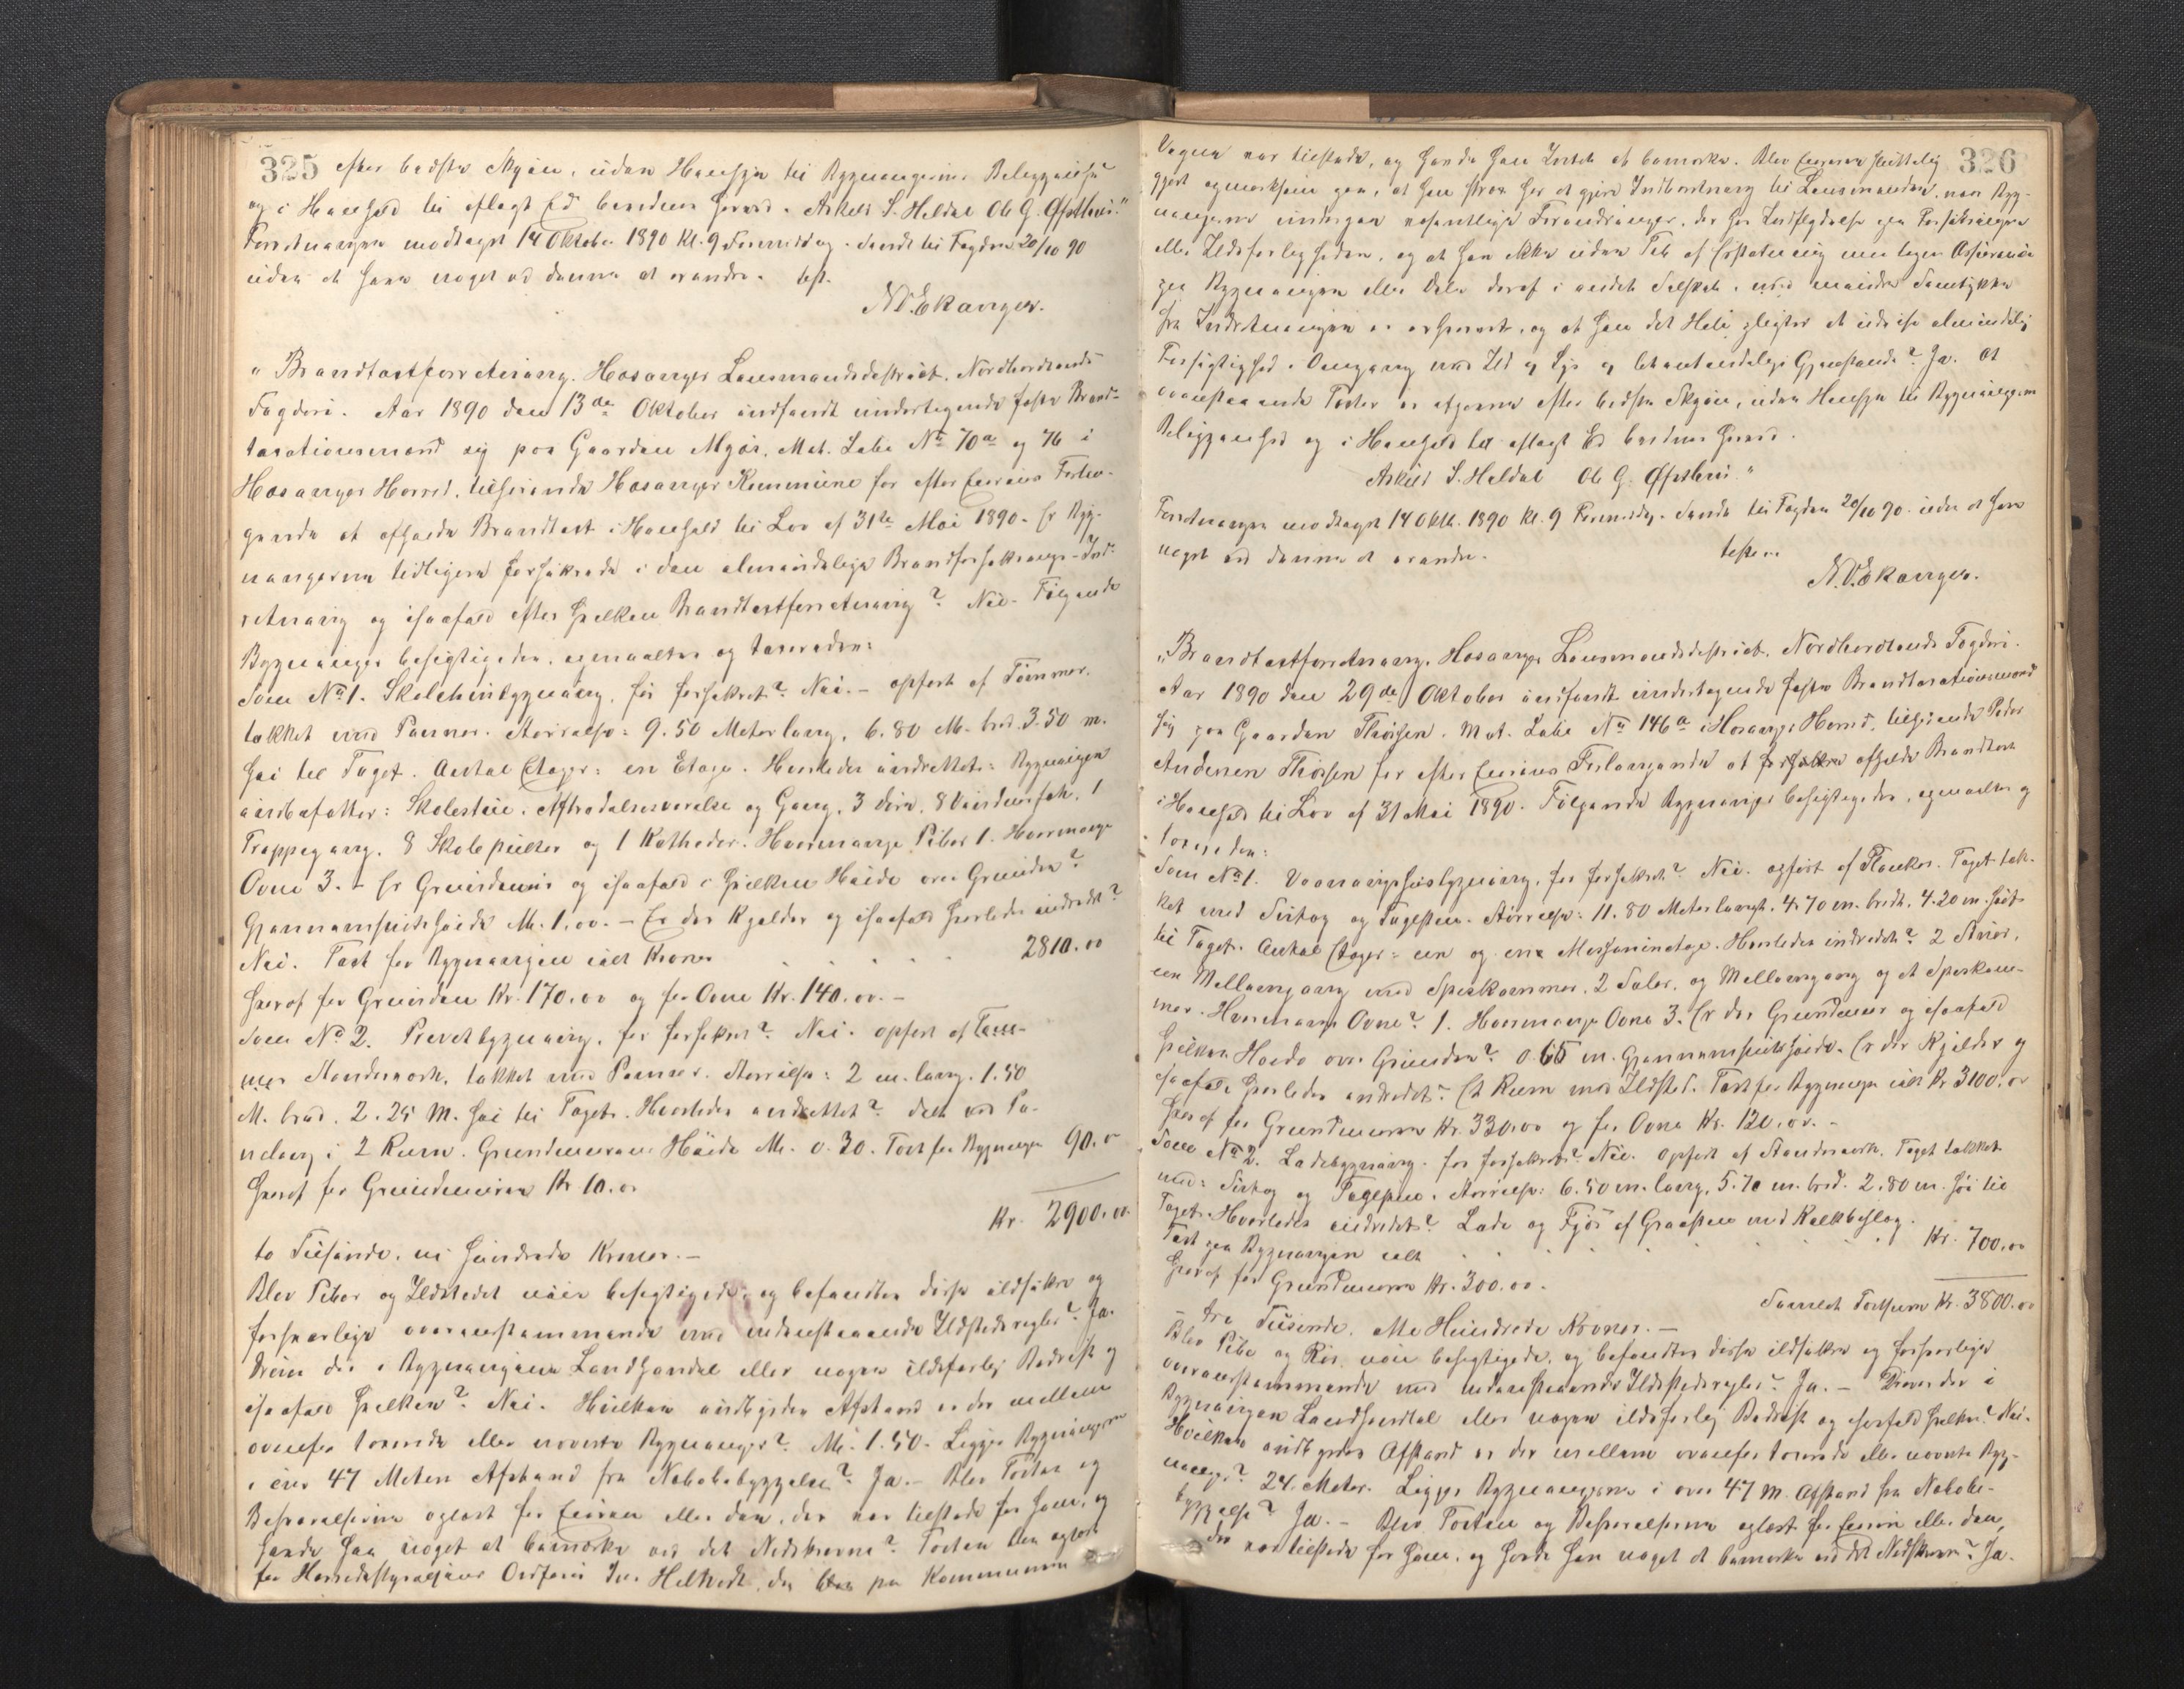 325 efter bedste Skjøn, uden Hensyn til Bygningernes Beliggenhed
og i Henhold til aflagt Ed bevidnes herved. Askild S. Heldal Ole G. Øpsthus."
Forretningen modtaget 14 Oktober 1890 Kl. 9 Formiddag. Sendt til Fogden 20/10 90
uden at have noget ved denne at erindre. test.
N.O. Ekanger.
"Brandtaxtforretning. Hosanger Lensmandsdistrict, Nordhordlands
Fogderi. Aar 1890 den 13de Oktober indfandt undertegnede faste Brand-
taxationsmænd sig paa Gaarden Mjøs, Mat. Løbe No 70a og 76 i
Hosanger Herred, tilhørende Hosanger Kommune for efter Eierens Forlan-
gende at afholde Brandtaxt i Henhold til Lov af 31te Mai 1890. Er Byg-
ningerne tidligere forsikrede i den almindelige Brandforsikrings-Ind-
retning og isaafald efter hvilken Brandtaxtforretning? Nei. Følgende
Bygninger besigtigedes, opmaaltes og taxeredes:
Som No 1. Skolehusbygning, før forsikret? Nei. - opført af Tømmer,
tækket med Panner. Størrelse: 9.50 Meter lang, 6.80 M. bred, 3.50 m.
høi til Taget. Antal Etager: en Etage. Hvorledes indrettet: Bygningen
indbefatter: Skolestue, Aftrædelsesværelse og Gang, 3 Døre, 8 Vinduesfag, 1
Trappegang, 8 Skolepulter og 1 Katheder. Hvormange Piber 1. Hvormange
Ovne 3. - Er Grundmur og isaafald i hvilken Høide over Grunden?
Gjennemsnitshøide M. 1.00. - Er der Kjelder og isaafald hvorledes indredet?
Nei. Taxt for Bygningen ialt Kroner . . . . . 2810.00
hvoraf for Grunden Kr. 170.00 og for Ovne Kr. 140.00. -
Som No 2. Privetbygning, før forsikret? Nei. opført af Tøm-
mer Stendermærk, tækket med Panner. Størrelse: 2 m. lang, 1.50
M. bred, 2.25 M. høi til Taget. Hvorledes indrettet? delt ved Pa-
neling i 2 Rum. Grundmurens Høide M. 0.30. Taxt for Bygningen 90.00
hvoraf for Grundmuren Kr 10.00
Kr. 2900.00
to Tusinde, ni Hundrede Kroner. -
Blev Piber og Ildstedet nøie besigtigede, og befandtes disse ildsikre og
forsvarlige overensstemmende med nedenstaaende Ildstedsregler? Ja.
Drives der i Bygningerne Landhandel eller nogen ildsfarlig Bedrift og
isaafald hvilken? Nei. Hvilken indbyrdes Afstand er der mellem
ovenfor taxerede eller nævnte Bygninger? M. 1.50. Ligger Bygningerne
i over 47 Meters Afstand fra Nabobebyggelse? Ja. - Blev Taxten og
Beskrivelserne oplæst for Eieren eller den, der var tilstede for ham, og
havde han noget at bemærke ved det Nedskrevne? Taxten blev oplæst
for Herredsstyrelsens Ordfører Ivr. Helltvedt, der paa Kommunens
326
Vegne var tilstede, og havde han Intet at bemærke. Blev Eieren skriftelig
gjort opmærksom paa, at han straks har at gjøre Indberetning til Lensmanden, naar Byg-
ningerne undergaar væsentlige Forandringer, der har Indflydelse paa Forsikringen
eller Ildsfarligheden, og at han ikke uden Tab af Erstatning maa tegne Assurance
paa Bygningen eller Dele deraf i andet Selskab, med mindre Samtykke
fra Indretningen er erhvervet, og at han det Hele pligter at udvise almindelig
Forsigtighed i Omgang med Ild og Lys og letantændelige Gjenstande? Ja. At
ovenstaaende Taxter er afgivne efter bedste Skjøn, uden Hensyn til Bygningernes
Beliggenhed og i Henhold til aflagt Ed bevidnes herved.
Askild S. Heldal Ole G. Øpsthus."
Forretningen modtaget 14 Oktb. 1890 Kl. 9 Formiddag. Sendt til Fogden 20/10 90. uden at have
noget ved denne at erindre. testere
N.O. Ekanger.
"Brandtaxtforretning. Hosanger Lensmandsdistrict, Nordhordlands Fogderi.
Aar 1890 den 29de Oktober indfandt undertegnede faste Brandtaxationsmænd
sig paa Gaarden Thoisen. Mat. Løbe No 146a i Hosanger Herred, tilhørende Peder
Andersen Thoisen for efter Eierens Forlangende at forsikre afholde Brandtaxt
i Henhold til Lov af 31 Mai 1890. Følgende Bygninger besigtigedes, opmaaltes og
taxeredes:
Som No 1. Vaaningshusbygning, før forsikret? Nei. opført af Planker. Taget tæk-
ket med Sutag og Tagsten. Størrelse: 11.80 Meter langt, 4.70 m. bredt, 4.20 m. høit
til Taget. Antal Etager: en og en Messaninetage. Hvorledes indredet? 2 Stuer,
en Mellemgang med Spiskammer, 2 Saler, og Mellemgang og et Spiskam-
mer. Hvormange Ovne? 1. Hvormange Ovne 3. Er der Grundmur og isaafald
hvilken Høide over Grunden? 0.65 m. Gjennemsnitshøide. Er der Kjelder og
isaafald hvorledes indredet? Et Rum med Ildsted. Taxt for Bygningen ialt Kr 3100.00
hvoraf for Grundmuren Kr. 330.00 og for Ovne Kr. 120.00. -
Som No 2. Ladebygning, før forsikret? Nei. Opført af Stendermærk, Taget tækket
med: Sutag og Tagsten. Størrelse: 6.50 m. lang, 5.70 m. bred, 2.80 m. høi til
Taget. Hvorledes indredet? Lade og Fjøs af Graasten med Kalkbeslag.
Taxt paa Bygningen ialt . . . . . . . Kr. 700.00
hvoraf for Grundmuren Kr. 300.00.
Samlet Taxtsum Kr. 3800.00
- tre Tusinde, otte Hundrede Kroner. -
Blev Pibe og Rør nøie besigtigede, og befandtes disse ildsikre og forsvarlige
overensstemmende med nedenstaaende Ildstedsregler? Ja. - Drives der i
Bygningen Landhandel eller nogen ildsfarlig Bedrift og isaafald hvilken? Nei.
Hvilken indbyrdes Afstand er der mellem ovenfor taxerede eller nævnte Byg-
ninger? 24 Meter. Ligger Bygningerne i over 47 M. Afstand fra Nabobe-
byggelse? Ja. - Blev Taxten og Beskrivelserne oplæst for Eieren eller den,
der var tilstede for ham, og havde han noget at bemærke ved det Nedskrevne? Ja.